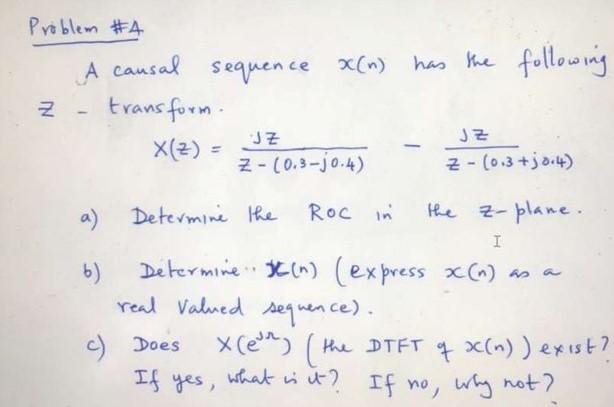 Problem #4
A causal sequence x(n) has the following
Z - transform.
X(z) = jz / z - (0.3-j0.4) - jz / z - (0.3+j0.4)
a) Determine the ROC in the z-plane.
b) Determine x(n) (express x(n) as a
real valued sequence).
c) Does X(e^jΩ) (the DTFT of x(n)) exist?
If yes, what is it? If no, why not?